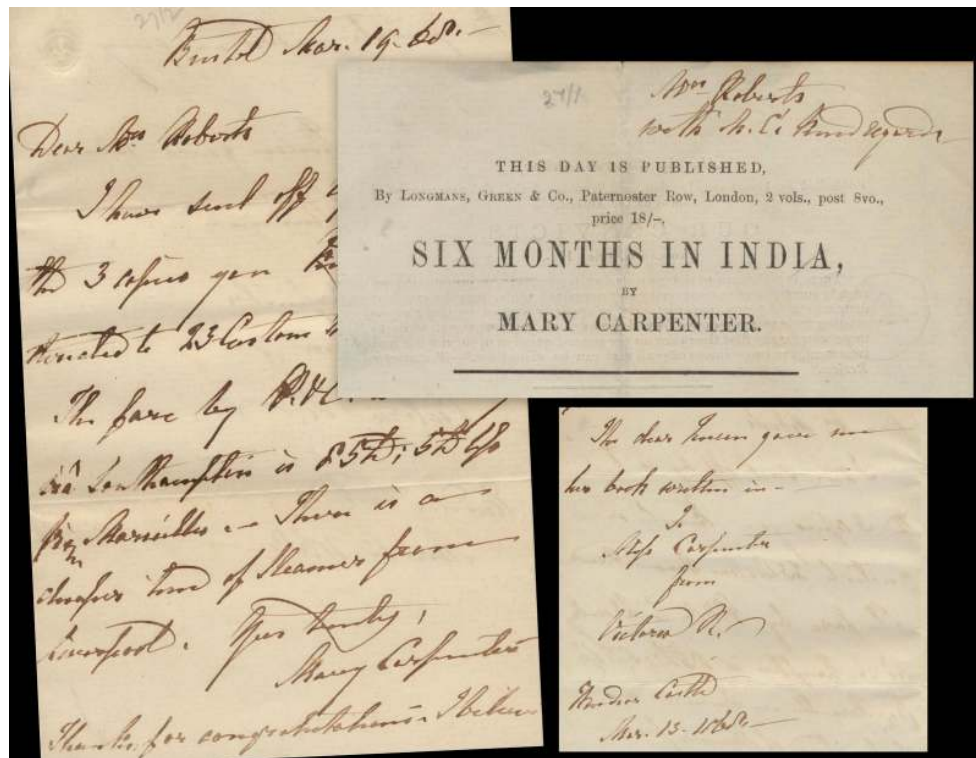 27/2
Bristol Mar. 19. 68. —
Dear Mrs Roberts
I have sent off
the 3 copies you
directed to 23 Custom
The fare by P. & O.
via Southampton is
Marseilles — There is a
cheaper line of Steamers from
Liverpool. Yours truly,
Mary Carpenter
Thanks for congratulations. I believe
27/1
Mrs Roberts
with M. C's kind regards
THIS DAY IS PUBLISHED,
By LONGMANS, GREEN & Co., Paternoster Row, London, 2 vols., post 8vo.,
price 18/–,
SIX MONTHS IN INDIA,
BY
MARY CARPENTER.
The dear Queen gave me
her book written in —
To
Miss Carpenter
from
Victoria R.
Windsor Castle
Mar. 13. 1868. —